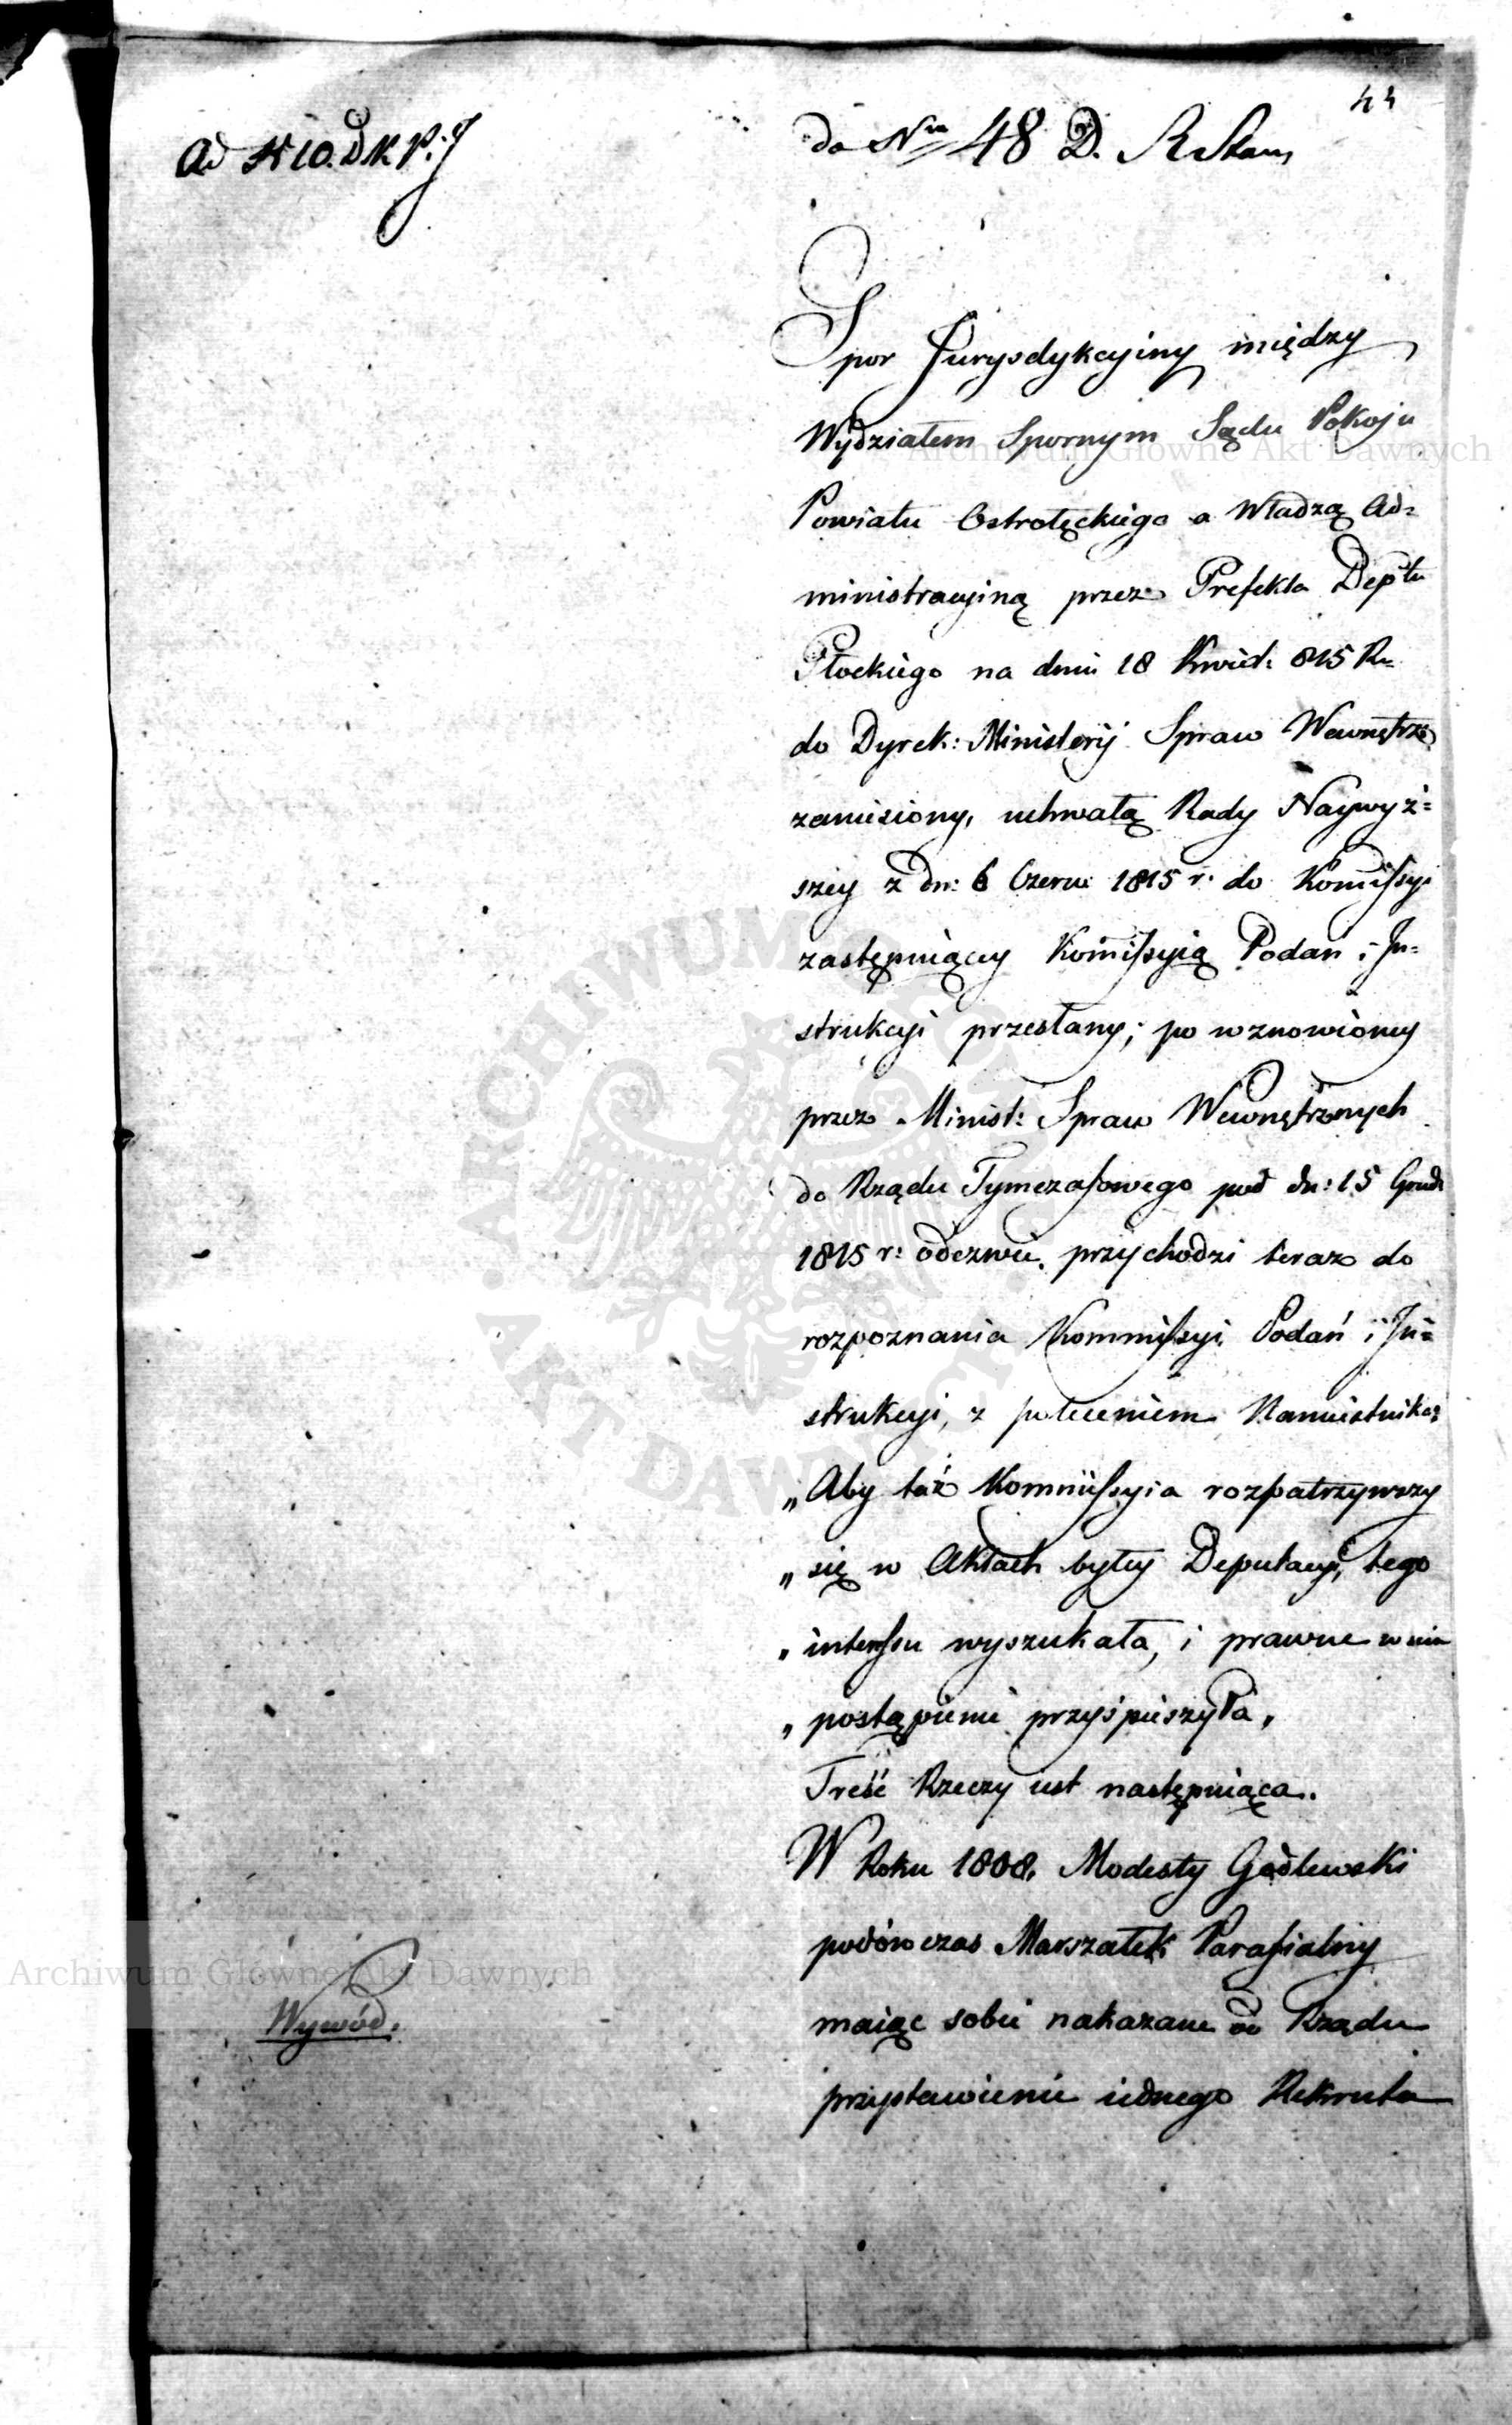 44
Ad N 10. D K P. J
do Nru 48 D. R Stanu
Spor Jurysdykcyiny między
Wydziałem Spornym Sądu Pokoju
Powiatu Ostrołęckiego a Władzą Ad=
ministracyiną przez Prefekta Deptu
Płockiego na dniu 18 Kwiet: 815 R.
do Dyrek: Ministerij Spraw Wewnętrz
zaniesiony, uchwałą Rady Naywyż=
szey z dn: 6 Czerw: 1815 r. do Komissyi
zastępuiącey Komissyią Podań i In=
strukcyi przesłany; po wznowioney
przez Minist: Spraw Wewnętrznych
do Rządu Tymczasowego pod dn: 15 Grud:
1815 r: odezwie, przychodzi teraz do
rozpoznania Kommissyi Podań i In=
strukcyi, z poleceniem Namiestnika:
„Aby taż Kommissyia rozpatrzywszy
„się w Aktach byłey Deputacyi, tego
„interessu wyszukała, i prawne w nim
„postąpienie przyśpieszyła„
Treść Rzeczy iest następuiąca.
W Roku 1808. Modesty Godlewski
podówczas Marszałek Parafialny
maiąc sobie nakazane od Rządu
przystawienie iednego Rekruta
Wywód.
Archiwum Główne Akt Dawnych
Archiwum Główne Akt Dawnych